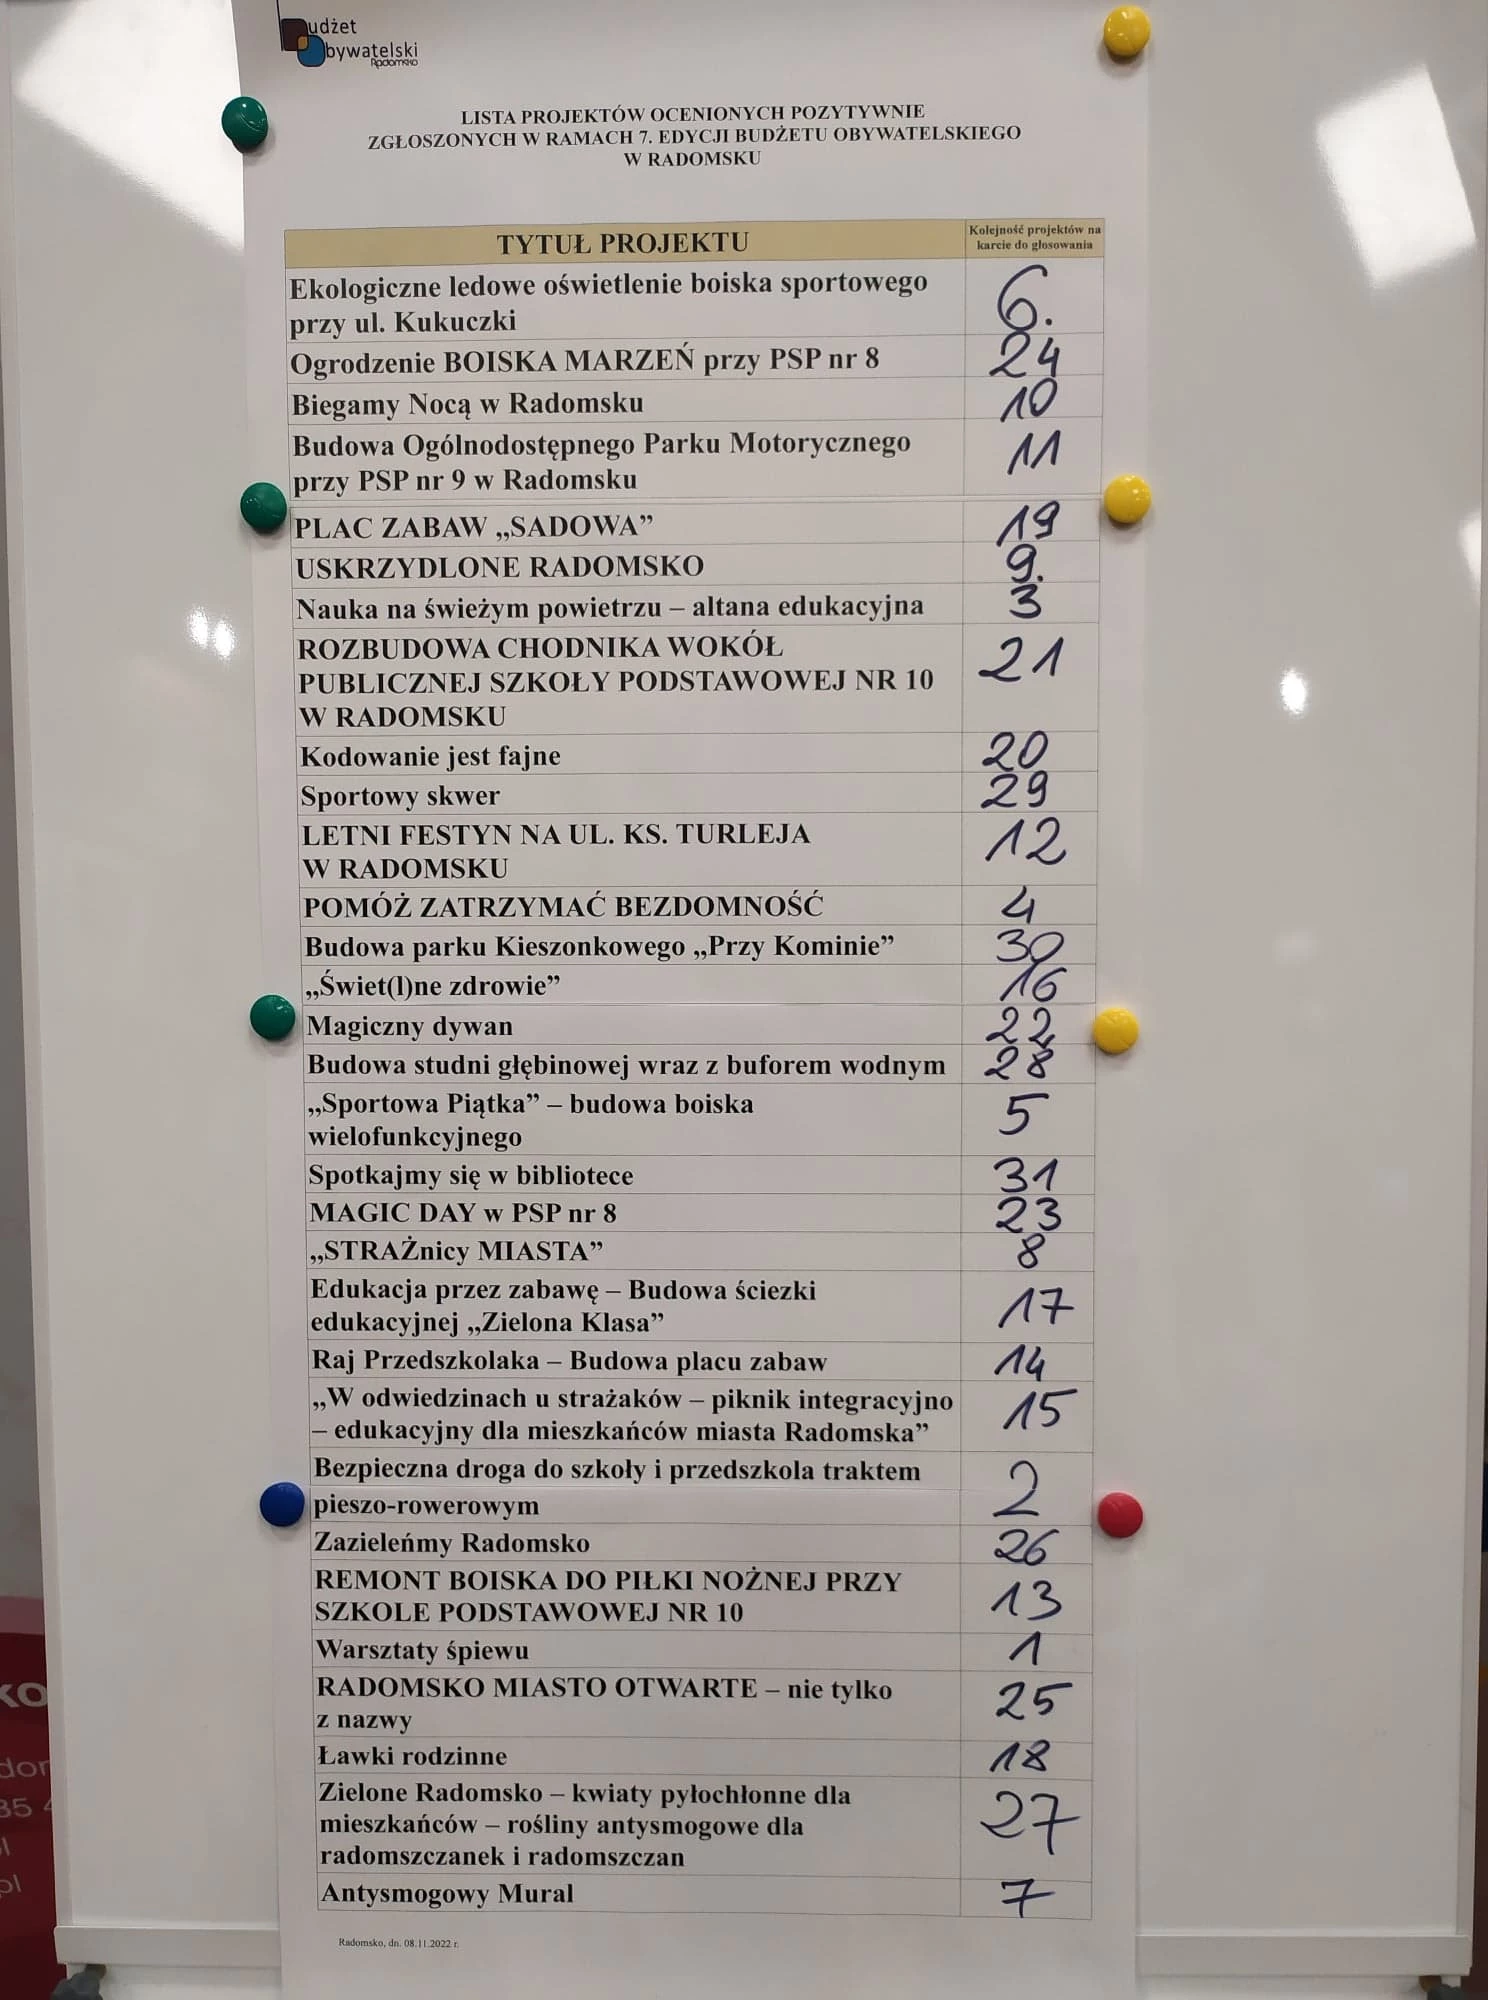 Budżet
Obywatelski
Radomsko
LISTA PROJEKTÓW OCENIONYCH POZYTYWNIE
ZGŁOSZONYCH W RAMACH 7. EDYCJI BUDŻETU OBYWATELSKIEGO
W RADOMSKU
TYTUŁ PROJEKTU
Kolejność projektów na
karcie do głosowania
Ekologiczne ledowe oświetlenie boiska sportowego
przy ul. Kukuczki
6.
Ogrodzenie BOISKA MARZEŃ przy PSP nr 8 24
Biegamy Nocą w Radomsku 10
Budowa Ogólnodostępnego Parku Motorycznego
przy PSP nr 9 w Radomsku
11
PLAC ZABAW „SADOWA” 19
USKRZYDLONE RADOMSKO 9.
Nauka na świeżym powietrzu – altana edukacyjna 3
ROZBUDOWA CHODNIKA WOKÓŁ
PUBLICZNEJ SZKOŁY PODSTAWOWEJ NR 10
W RADOMSKU
21
Kodowanie jest fajne 20
Sportowy skwer 29
LETNI FESTYN NA UL. KS. TURLEJA
W RADOMSKU
12
POMÓŻ ZATRZYMAĆ BEZDOMNOŚĆ 4
Budowa parku Kieszonkowego „Przy Kominie” 30
„Świet(l)ne zdrowie” 16
Magiczny dywan 22
Budowa studni głębinowej wraz z buforem wodnym 28
„Sportowa Piątka” – budowa boiska
wielofunkcyjnego
5
Spotkajmy się w bibliotece 31
MAGIC DAY w PSP nr 8 23
„STRAŻnicy MIASTA” 8
Edukacja przez zabawę – Budowa ściezki
edukacyjnej „Zielona Klasa”
17
Raj Przedszkolaka – Budowa placu zabaw 14
„W odwiedzinach u strażaków – piknik integracyjno
– edukacyjny dla mieszkańców miasta Radomska”
15
Bezpieczna droga do szkoły i przedszkola traktem
pieszo-rowerowym
2
Zazieleńmy Radomsko 26
REMONT BOISKA DO PIŁKI NOŻNEJ PRZY
SZKOLE PODSTAWOWEJ NR 10
13
Warsztaty śpiewu 1
RADOMSKO MIASTO OTWARTE – nie tylko
z nazwy
25
Ławki rodzinne 18
Zielone Radomsko – kwiaty pyłochłonne dla
mieszkańców – rośliny antysmogowe dla
radomszczanek i radomszczan
27
Antysmogowy Mural 7
Radomsko, dn. 08.11.2022 r.